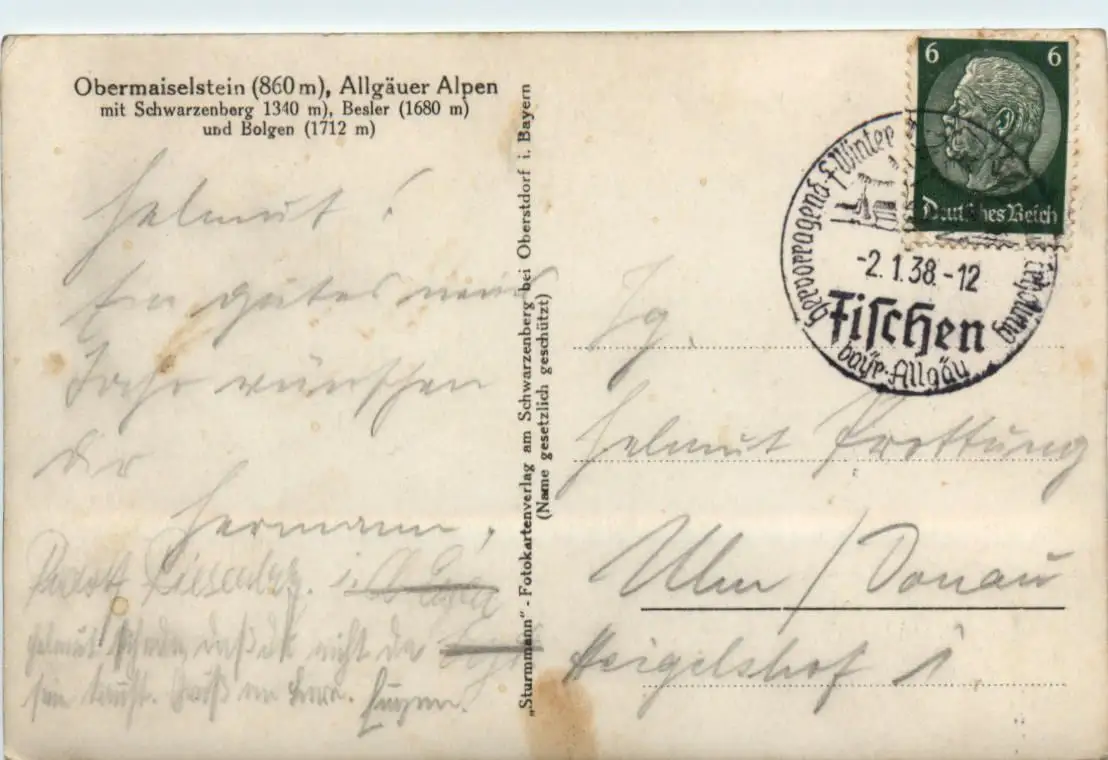 Obermaiselstein (860 m), Allgäuer Alpen
mit Schwarzenberg 1340 m), Besler (1680 m)
und Bolgen (1712 m)
Helmut!
Ein gutes neues
Jahr wünschen
dir
Hermann,
Helmut! schade, daß du nicht da
sein kannst.
„Sturmmann" - Fotokartenverlag am Schwarzenberg bei Oberstdorf i. Bayern
(Name gesetzlich geschützt)
6 6
Deutsches Reich
Hervorragend f. Winter
Erholung
-2.1.38.-12
Fischen
bayr. Allgäu
Jg.
Helmut
Ulm / Donau
Heigelshof 1.